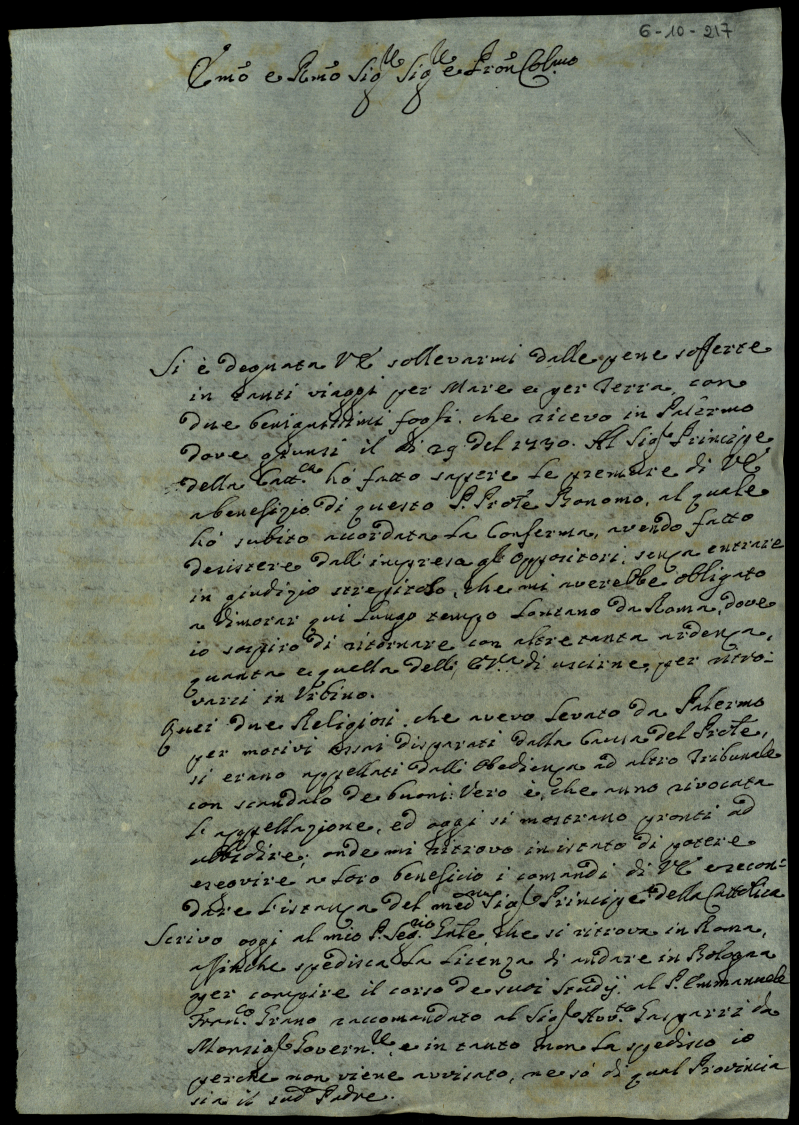 6-10-217
Emo e Rmo Sig.re Sig.re e Pron Colmo
Si è degnata VE sollevarmi dalle pene sofferte
in tanti viaggi per Mare e per Terra con
due benignissimi fogli, che ricevo in Palermo
dove giunsi il di 29 del 1730. Al Sig.r Principe
della Catt.ca hó fatto sapere le premure di VE
a benefizio di questo P. Prov.le Bonomo, al quale
hó subito accordata la Conferma, avendo fatto
desistere dall'impresa gl'Oppositori, senza entrare
in giudizio strepitoso, che mi averebbe obligato
a dimorar qui lungo tempo lontano da Roma, dove
io sospiro di ritornare con altretanta ardenza,
quanta e quella dell' di uscirne, per ritro-
varsi in Urbino.
Quei due Religiosi, che avevo levato da Palermo
per motivi assai disparati dalla Causa del Prov.le,
si erano appellati dall'Obedienza ad altro Tribunale
con scandalo de buoni: Vero è, che anno rivocata
l'appellazione, ed oggi si mostrano pronti ad
ubbidire; onde mi ritrovo in istato di potere
eseguire a loro beneficio i comandi di VE e secon-
dare l'istanza del med.mo Sig.r Principe della Cattolica
Scrivo oggi al mio P. Seg.rio Gnle, che si ritrova in Roma,
affinche spedisca la Licenza di andare in Bologna
per compire il corso de suoi studij al P. Emmanuele
Fran.co Grano raccomandato al Sig.r Avv.to Gasparri da
Monsig.r Govern.re, e in tanto non la spedisco io
perche non viene avvisato, ne só di qual Provincia
sia il sud.o Padre.